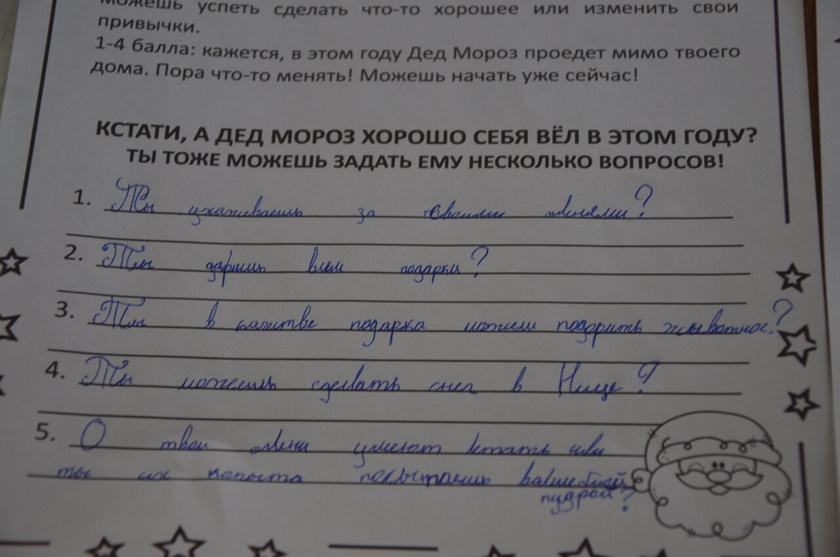 можешь успеть сделать что-то хорошее или изменить свои
привычки.
1-4 балла: кажется, в этом году Дед Мороз проедет мимо твоего
дома. Пора что-то менять! Можешь начать уже сейчас!
КСТАТИ, А ДЕД МОРОЗ ХОРОШО СЕБЯ ВЁЛ В ЭТОМ ГОДУ?
ТЫ ТОЖЕ МОЖЕШЬ ЗАДАТЬ ЕМУ НЕСКОЛЬКО ВОПРОСОВ!
1. Ты ухаживаешь за своими оленями?
2. Ты даришь всем подарки?
3. Ты в качестве подарка можешь подарить животное?
4. Ты можешь сделать снег в Ницце?
5. О твои олени умеют летать или
ты их попыта посыпаешь
пудрой?